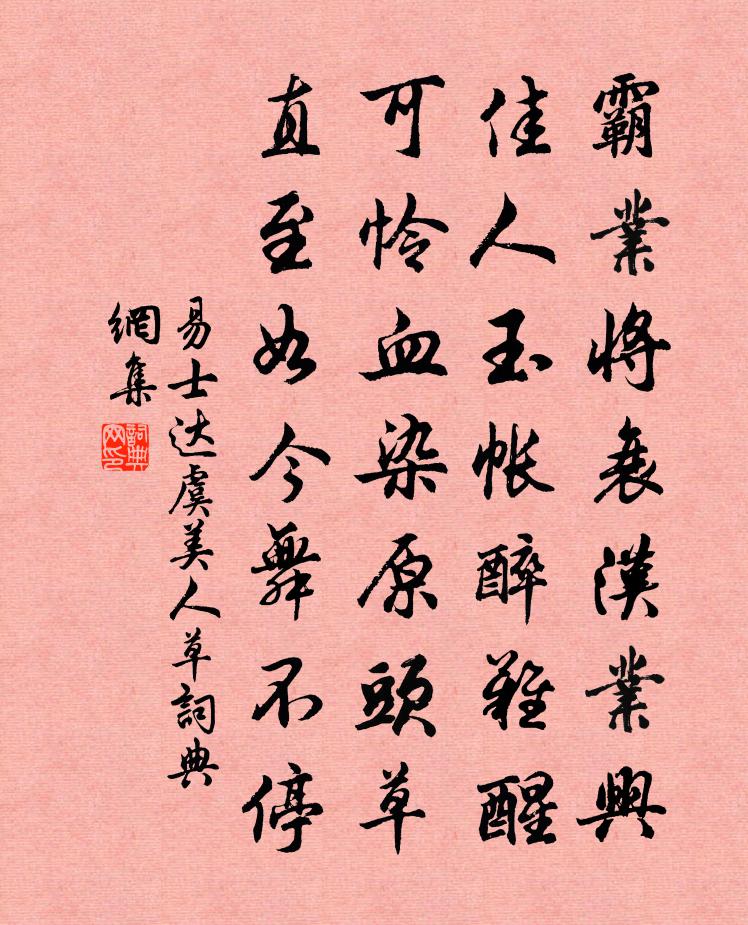 霸業將衰漢業興
佳人玉帳醉難醒
可怜血染原頭草
直至如今舞不停
易士达虞美人草詞典
網集
詞典
网印